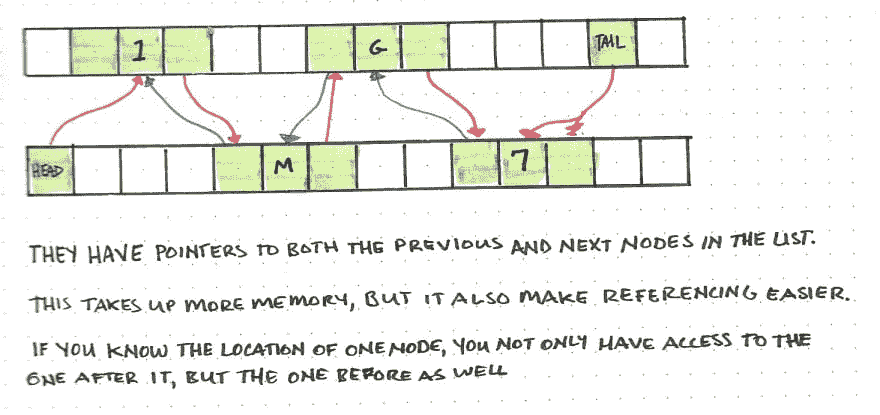 1 G TAIL
HEAD M 7
THEY HAVE POINTERS TO BOTH THE PREVIOUS AND NEXT NODES IN THE LIST.
THIS TAKES UP MORE MEMORY, BUT IT ALSO MAKE REFERENCING EASIER.
IF YOU KNOW THE LOCATION OF ONE NODE, YOU NOT ONLY HAVE ACCESS TO THE
ONE AFTER IT, BUT THE ONE BEFORE AS WELL